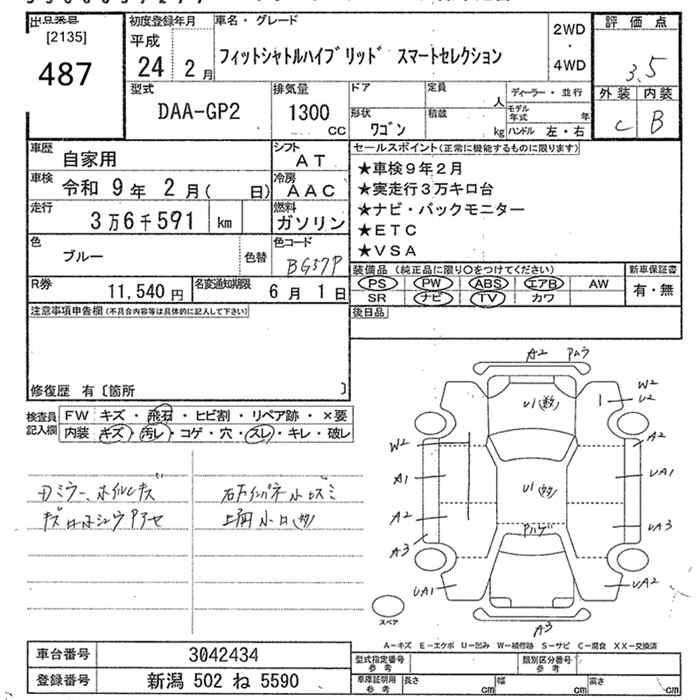 出品番号
[2135]
487
初度登録年月
平成
24年 2月
車名・グレード
フィットシャトルハイブリッド スマートセレクション
2WD
・
4WD
評価点
3.5
外装 内装
C B
型式
DAA-GP2
排気量
1300
CC
ドア
定員
人
形状
ワゴン
積載
kg
ディーラー・並行
モデル年式 年
ハンドル 左・右
車歴
自家用
シフト
AT
車検
令和 9年 2月( 日)
冷房
AAC
走行
3万6千591 km
燃料
ガソリン
色
ブルー
色替
色コード
BG57P
R券
11,540円
名変通知期限
6月 1日
セールスポイント(正常に機能するものに限ります)
★車検9年2月
★実走行3万キロ台
★ナビ・バックモニター
★ETC
★VSA
装備品 (純正品に限り○をつけてください)
新車保証書
PS PW ABS エアB AW
SR ナビ TV カワ
有・無
後日品
注意事項申告欄(不具合内容等は具体的に記入して下さい)
修復歴 有〔箇所 〕
検査員記入欄
FW キズ・飛石・ヒビ割・リペア跡・×要
内装 キズ・汚レ・コゲ・穴・スレ・キレ・破レ
A2
W2
U2
U1
W2
A2
A1
U1
UA1
A2
UA3
A3
UA1
UA2
A3
スペア
A－キズ E－エクボ U－凹み W－補修跡 S－サビ C－腐食 XX－交換済
車台番号 3042434
登録番号 新潟 502 ね 5590
型式指定番号
参考
類別区分番号
参考
車庫証明用
参考
長さ cm
幅 cm
高さ cm